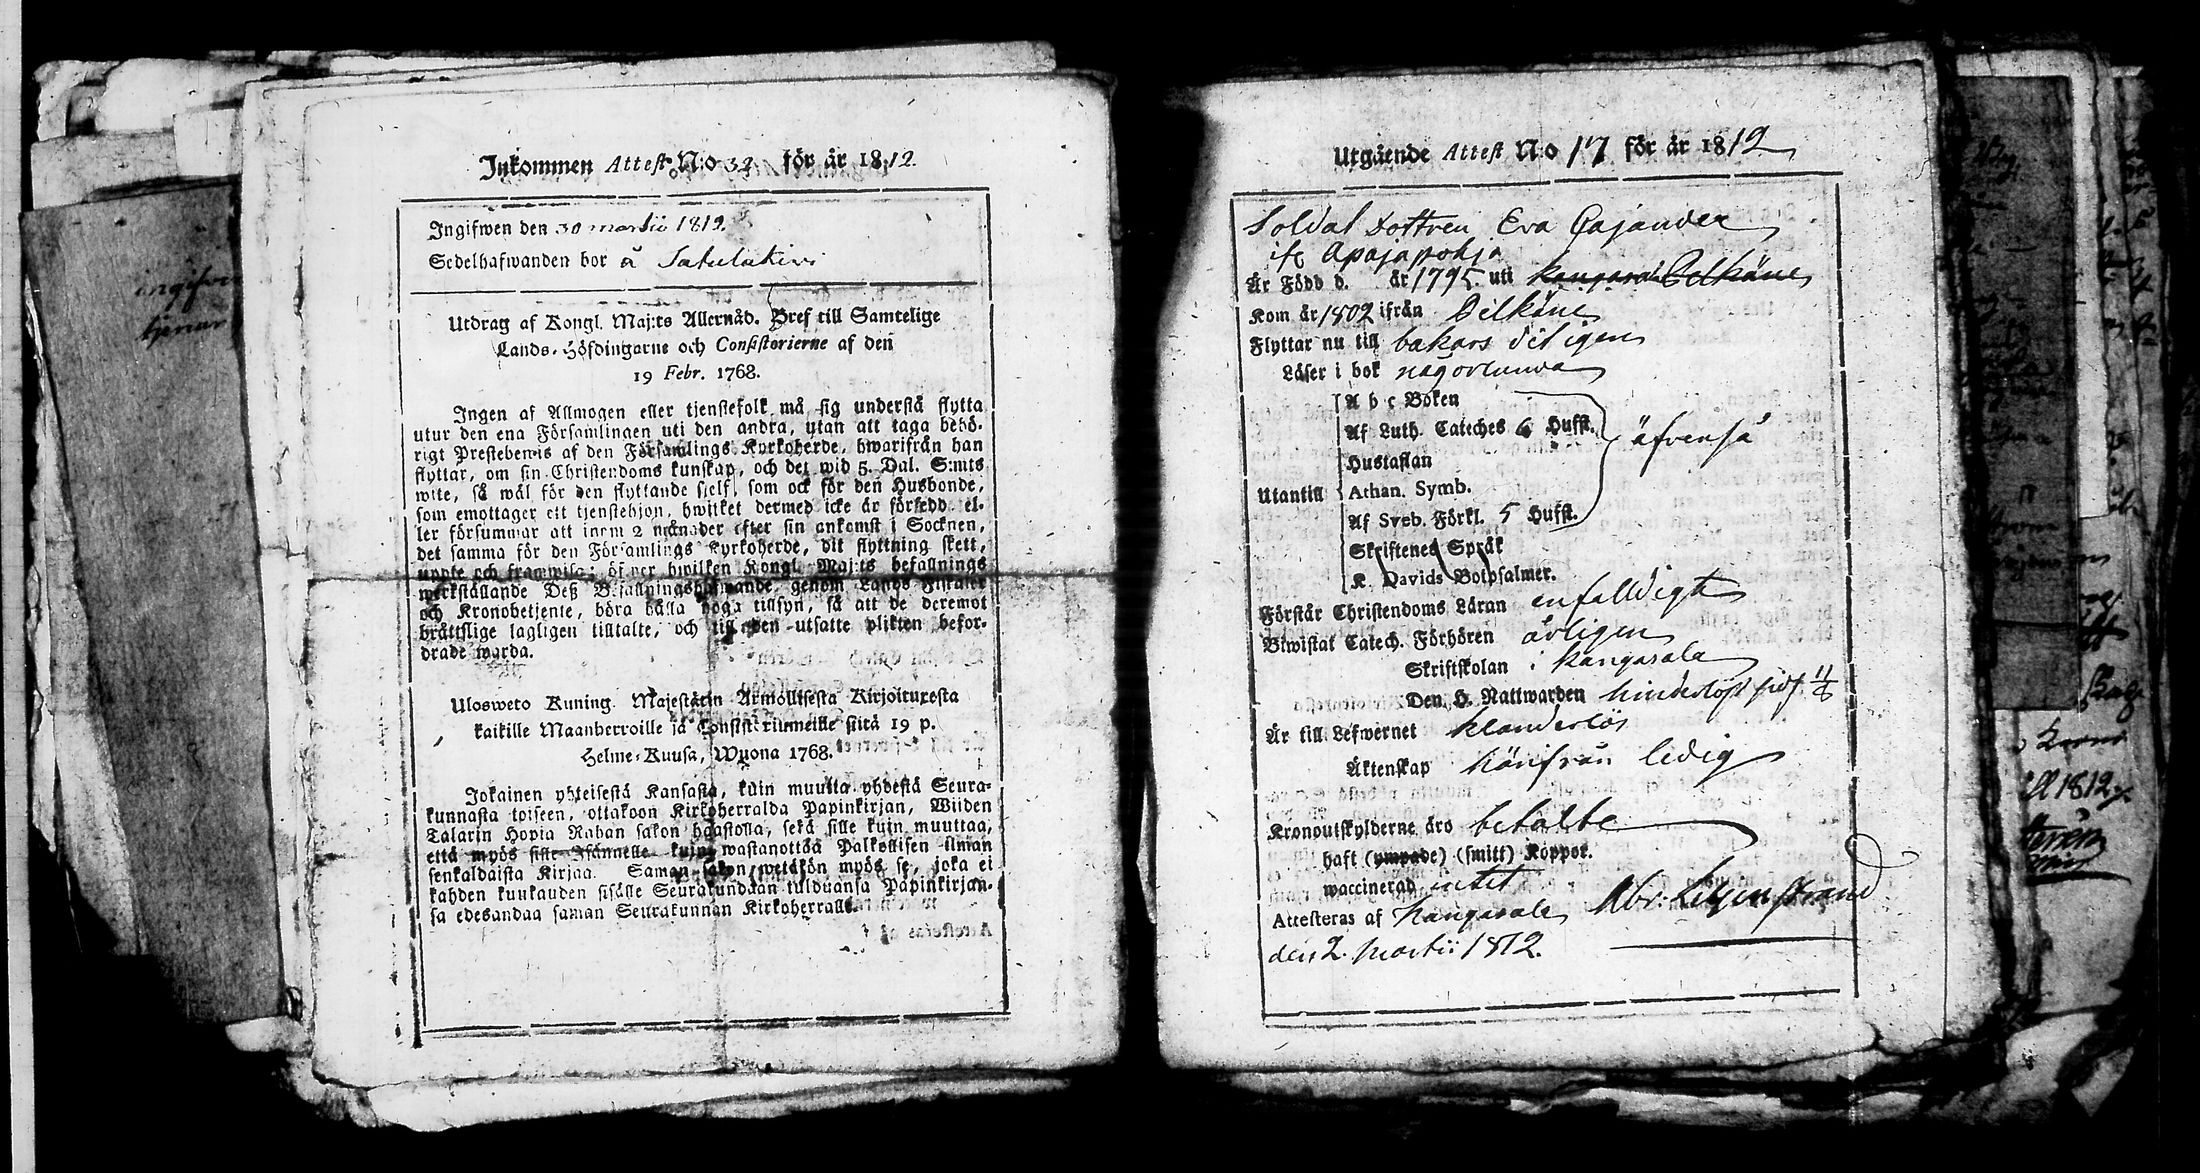 Inkommen Attest N:o 32 för år 1812.
Ingifwen den 30 martii 1812.
Sedelhafwanden bor å Satulakivi
Utdrag af Kongl. Maj:ts Allernåd. Bref till Samtelige
Lands-Höfdingarne och Consistorierne af den
19 Febr. 1768.
Ingen af Allmogen eller tjenstefolk må sig understå flytta
utur den ena Församlingen uti den andra, utan att taga behö-
rigt Prestebewis af den Församlings Kyrkoherde, hwarifrån han
flyttar, om sin Christendoms kunskap, och det wid 5. Dal. S:mts
wite, så wäl för den flyttande sjelf, som ock för den Husbonde,
som emottager ett tjenstehjon, hwilket dermed icke är försedd el-
ler försummar att inom 2 månader efter sin ankomst i Socknen,
det samma för den Församlings Kyrkoherde, dit flyttning skett,
uppte och framwisa; öfwer hwilken Kongl. Maj:ts befallnings
werkställande Deß Befallningshafwande genom Lands Fiskaler
och Kronobetjente, böra hålla noga tillsyn, så att de deremot
bråttslige lagligen tilltalte, och till den utsatte plikten befor-
drade warda.
Ulosweto Kuning. Majestätin Armollisesta Kirjoituxesta
kaikille Maanherroille ja Consistoriumeille siitä 19 p.
Helme-Kuusa, Wuona 1768.
Jokainen yhteisestä Kansasta, kuin muutta yhdestä Seura-
kunnasta toiseen, ottakoon Kirkoherralda Papinkirjan, Wiiden
Talarin Hopia Rahan sakon haastolla, sekä sille kuin muuttaa,
että myös sille Isännelle kuin wastanottaa Palkollisen ilman
senkaldaista Kirjaa. Saman sakon wetäkön myös se, joka ei
kahden kuukauden sisälle Seurakundaan tulduansa Papinkirjan-
sa edesandaa saman Seurakunnan Kirkoherralle.
Utgående Attest N:o 17 för år 1812
Soldat Dottren Eva Cajander
ifr Apajapohja
Är Född d. år 1795. uti Pelkäne
Kom år 1802 ifrån Pelkäne
Flyttar nu till bakars dit igen
Läser i bok någorlunda
A b c Boken
Af Luth. Cateches 6 Hufst.
äfvenså
Hustaflan
Utantill
Athan. Symb.
Af Sveb. Förkl. 5 Hufst.
Skriftenes Språk
K. Davids Botpsalmer.
Förstår Christendoms Läran enfalldigt
Biwistat Catech. Förhören årligen
Skriftskolan i Kangasala
Den H. Nattwarden hinderlöst sist
Är till Lefwernet klanderlös
Äktenskap härifrån ledig
Kronoutskylderne äro betalte
haft (ympade) (smitt) Koppor.
waccinerad intet
Attesteras af Kangasala Abr: Lilljenstrand
den 2. Martii 1812.
ingifven